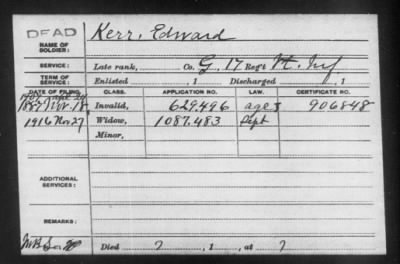 DEAD
NAME OF SOLDIER: Kerr, Edward
SERVICE: Late rank, Co. G, 17 Reg't Vt. Inf
TERM OF SERVICE: Enlisted , 1 Discharged , 1
DATE OF FILING. CLASS. APPLICATION NO. LAW. CERTIFICATE NO.
1887 Nov. 18 Invalid, 629.496 age 906848
1916 Nov 27 Widow, 1087.483 Sept
Minor,
ADDITIONAL SERVICES:
REMARKS:
Died ? , 1 , at ?